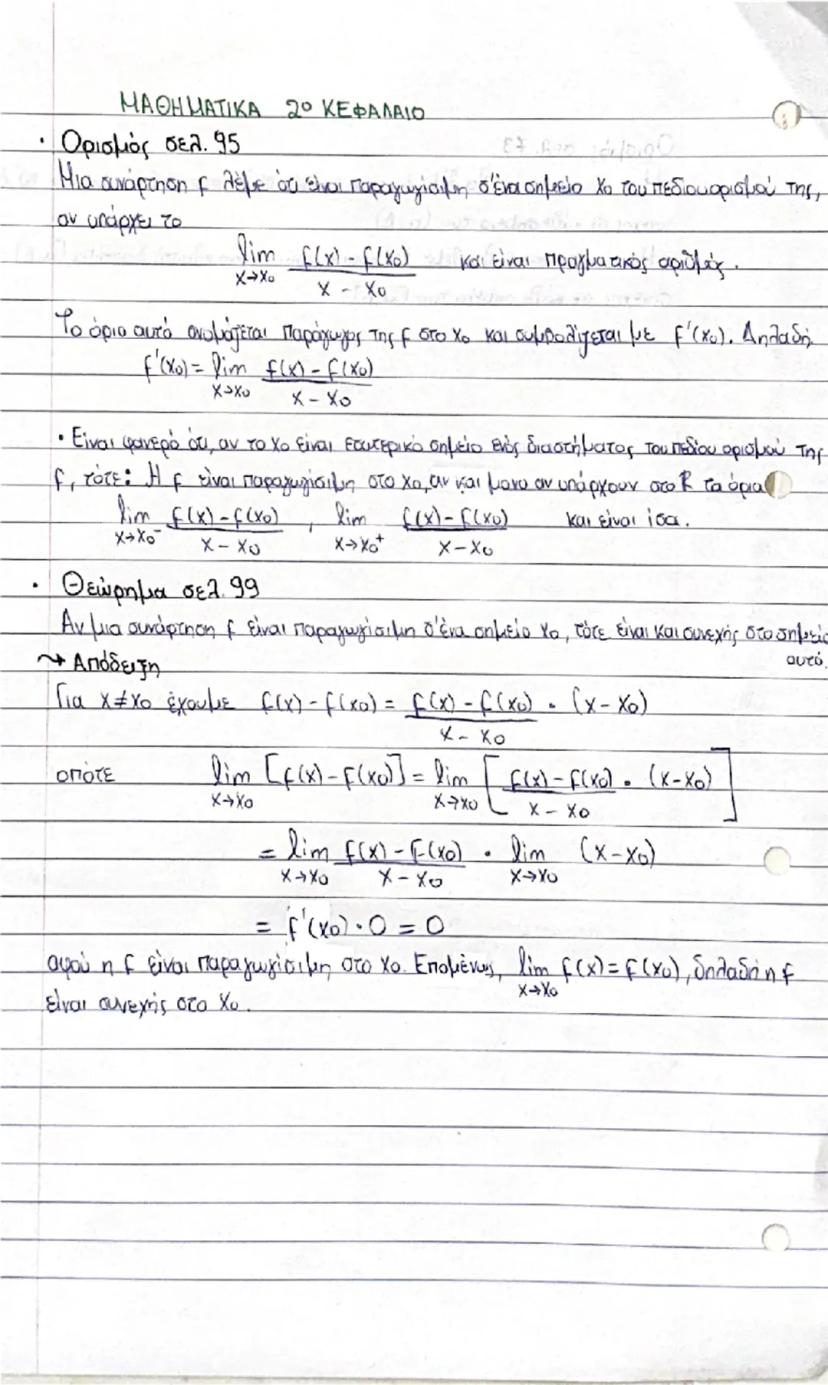 ΜΑΘΗΜΑΤΙΚΑ 2ο ΚΕΦΑΛΑΙΟ
• Ορισμός σελ. 95
Μια συνάρτηση f λέμε ότι είναι παραγωγίσιμη σ'ένα σημείο x₀ του πεδίου ορισμού της,
αν υπάρχει το
lim x→x₀ (f(x) - f(x₀))/(x - x₀) και είναι πραγματικός αριθμός.
Το όριο αυτό ονομάζεται παράγωγος της f στο x₀ και συμβολίζεται με f'(x₀). Δηλαδή
f'(x₀) = lim x→x₀ (f(x) - f(x₀))/(x - x₀)
• Είναι φανερό ότι, αν το x₀ είναι εσωτερικό σημείο ενός διαστήματος του πεδίου ορισμού της
f, τότε: Η f είναι παραγωγίσιμη στο x₀, αν και μονο αν υπάρχουν στο R τα όρια
lim x→x₀⁻ (f(x) - f(x₀))/(x - x₀) , lim x→x₀⁺ (f(x) - f(x₀))/(x - x₀) και είναι ίσα.
• Θεώρημα σελ. 99
Αν μια συνάρτηση f είναι παραγωγίσιμη σ'ένα σημείο x₀, τότε είναι και συνεχής στο σημείο
αυτό.
⇝ Απόδειξη
Για x≠x₀ έχουμε f(x) - f(x₀) = (f(x) - f(x₀))/(x - x₀) • (x - x₀)
οπότε lim x→x₀ [f(x) - f(x₀)] = lim x→x₀ [(f(x) - f(x₀))/(x - x₀) • (x - x₀)]
= lim x→x₀ (f(x) - f(x₀))/(x - x₀) • lim x→x₀ (x - x₀)
= f'(x₀) • 0 = 0
αφού η f είναι παραγωγίσιμη στο x₀. Επομένως, lim x→x₀ f(x) = f(x₀), δηλαδή η f
είναι συνεχής στο x₀.